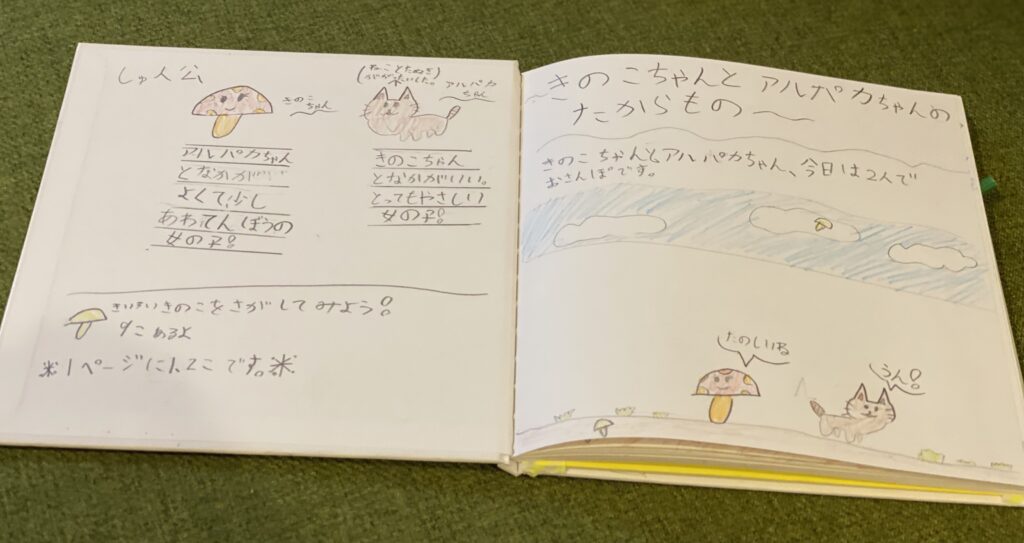 しゅ人公
きのこ
ちゃん
アルパカちゃん
となかが
よくて少し
あわてんぼうの
女の子!
(ねことたぬき
がが たいした。)
アルパカ
ちゃん
きのこちゃん
となかがいい。
とってもやさしい
女の子!
きいろいきのこをさがしてみよう!
9こあるよ
※1ページに1、2こです。※
きのこちゃんとアルパカちゃんの
たからもの〜
きのこちゃんとアルパカちゃん、今日は2人で
おさんぽです。
たのしいね
うん!